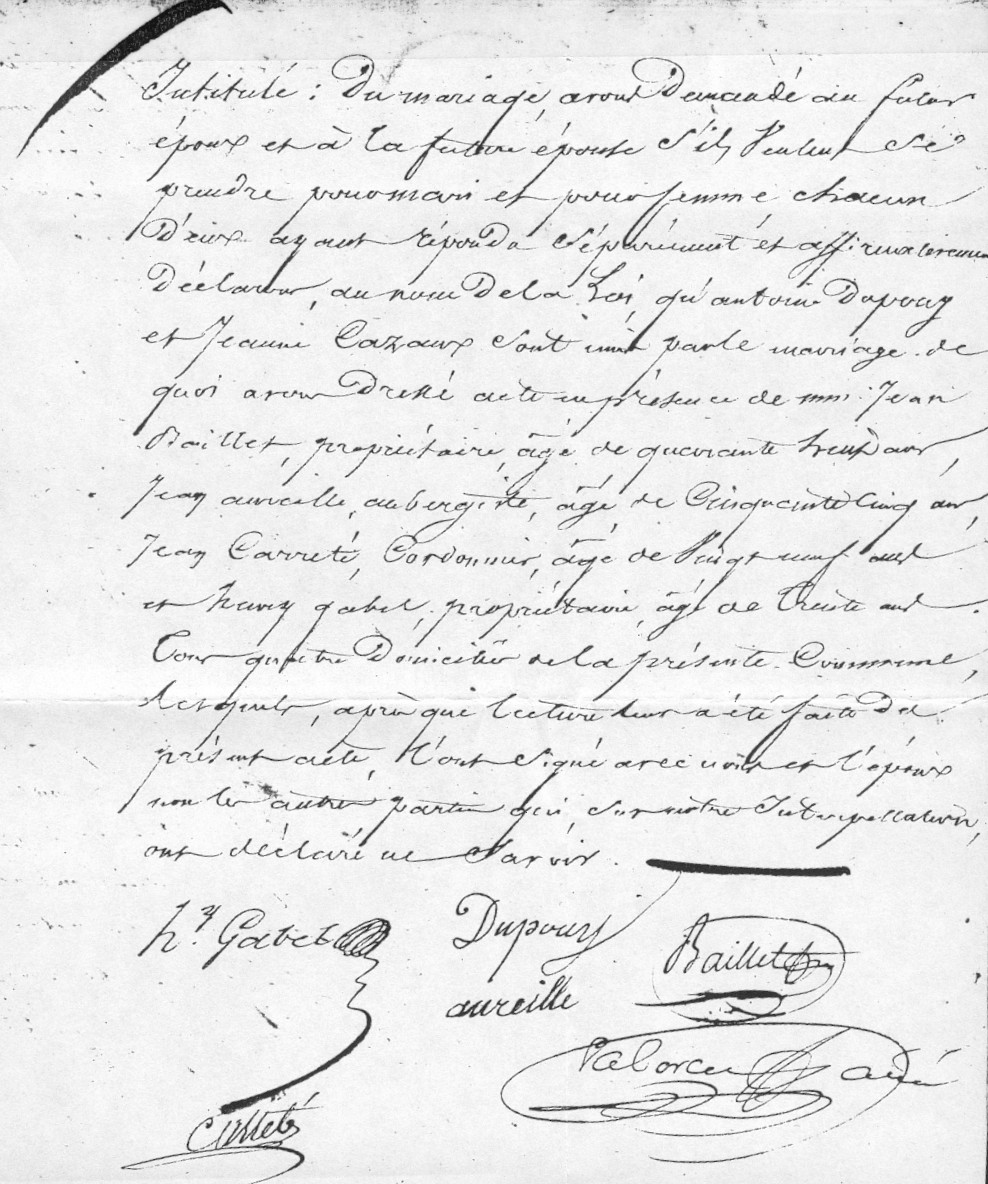 Intitulé : Du mariage, avons Demandé au futur
époux et à la future épouse S'ils Veulent Se
prendre pour mari et pour femme chacun
D'eux ayant répondu Séparément et affirmativement
Déclarons, au nom De la Loi, qu'antoine Dupouy
et Jeanne Cazaux Sont unis par le mariage. de
quoi avons Dressé acte en présence de mm. Jean
Baillet, propriétaire, âgé de quarante huit ans,
Jean aureille, aubergiste, âgé de Cinquante Cinq ans,
Jean Carreté, Cordonnier, âgé de Vingt neuf ans
et henry gabet, propriétaire, âgé de Trente ans.
Tous quatre Domiciliés de la présente Commune,
Lesquels, après que lecture leur a été faite du
présent acte, l'ont Signé avec nous et l'époux
non les autres parties qui, Sur notre Interpellation,
ont déclaré ne Savoir.
hy. Gabet
Dupouy
Baillet
aureille